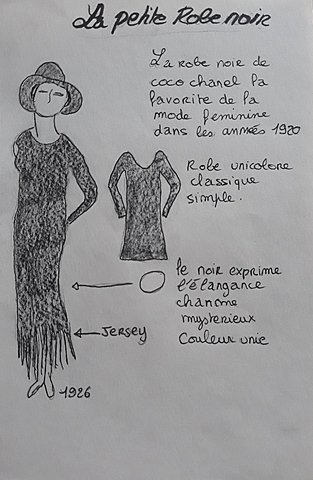 La petite Robe noir
La robe noie de
coco chanel la
favorite de la
mode feminine
dans les années 1920
Robe unicolore
classique
simple.
le noir exprime
l'élangance
chancme
mysterieux
couleur unie
Jersey
1926